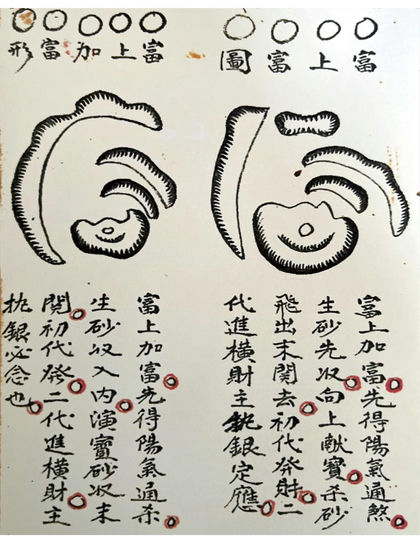 富上富圖
富上加富先得陽氣通煞
生砂先收向上獻寶杀砂
飛出末関去初代發財二
代進橫財主銀定應
富上加富形
富上加富先得陽氣通杀
生砂收入內演寶砂收末
関初代發二代進橫財主
銀必念也